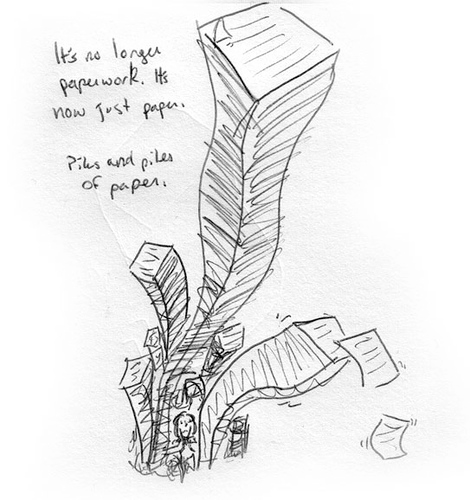 It's no longer
paperwork. Its
now just paper.
Piles and piles
of paper.